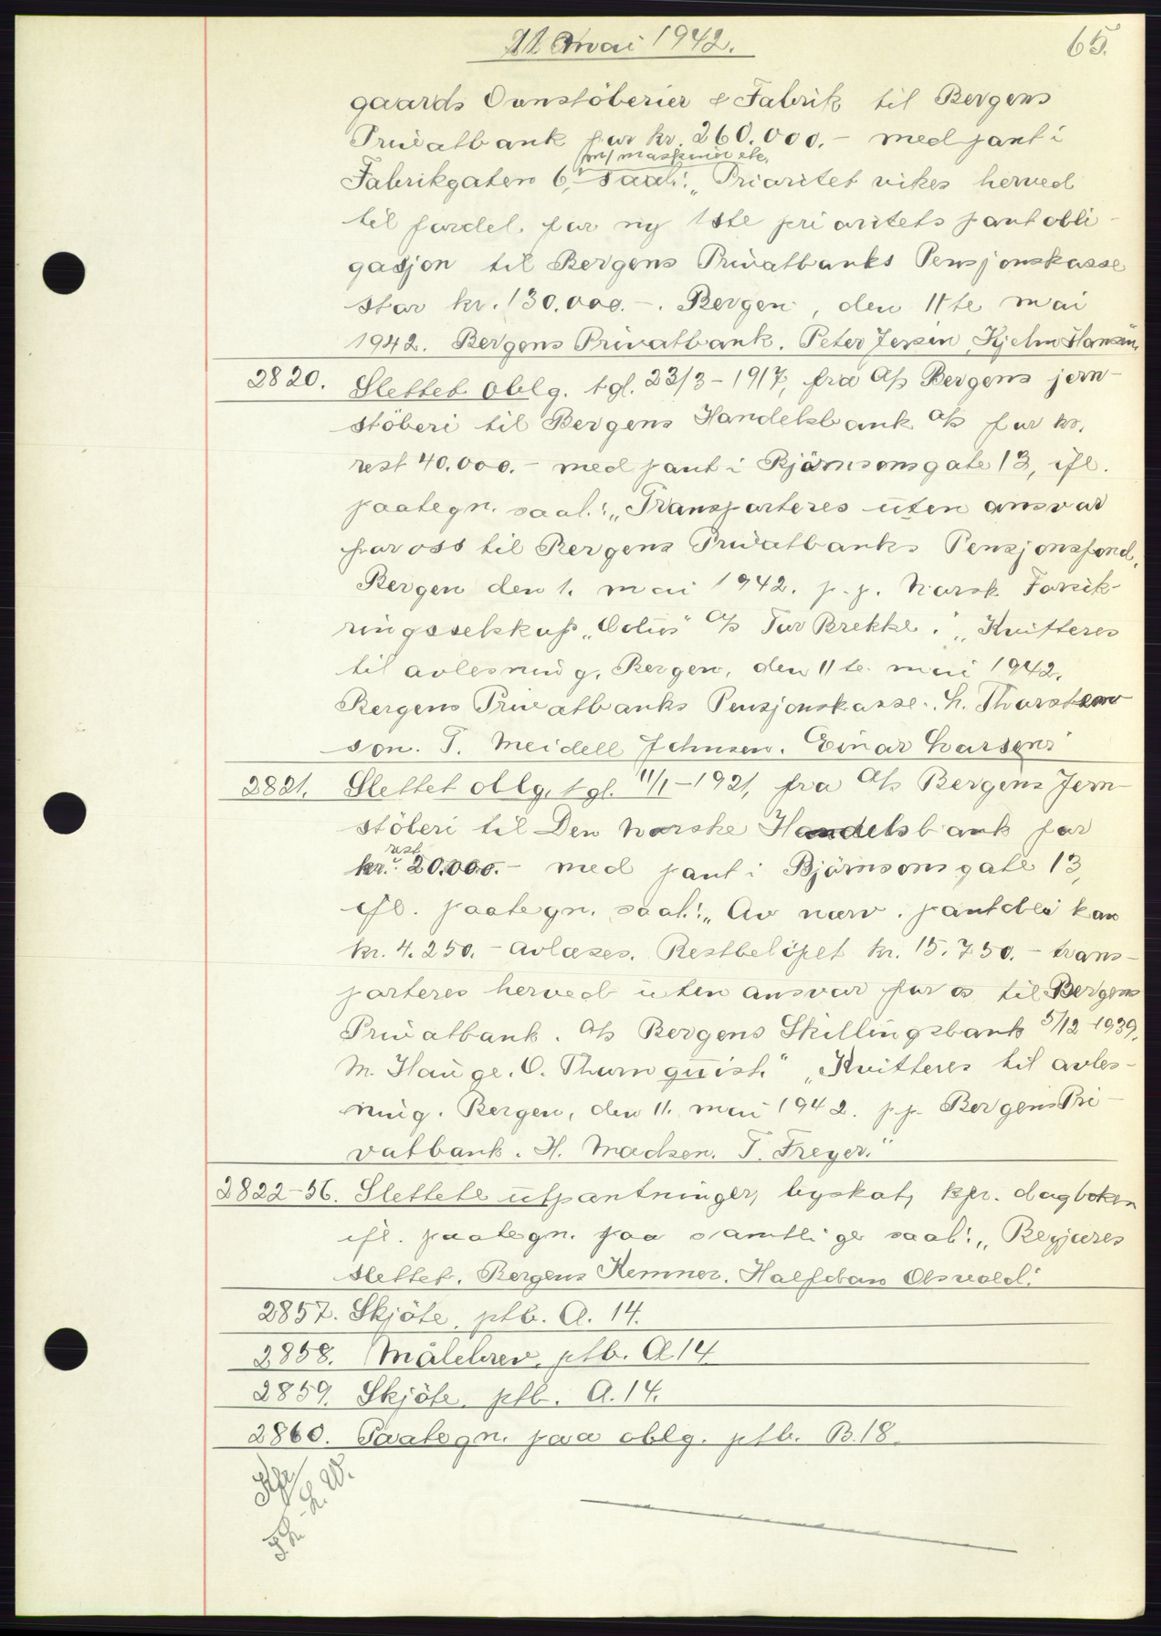 11 mai 1942.
65.
gaards Ovnstöberier & Fabrik til Bergens
Privatbank for kr. 260.000.- med pant i
m/ maskiner etc.
Fabrikgaten 6, saal: „Prioritet vikes herved
til fordel for ny 1ste prioritets pantobli-
gasjon til Bergens Privatbanks Pensjonskasse
stor kr. 130.000.-. Bergen, den 11te mai
1942. Bergens Privatbank. Peter Jessen, Hansen.
2820. Slettet oblg. tgl. 23/3-1917, fra A/s Bergens jern-
stöberi til Bergens Handelsbank A/s for kr.
rest 40.000.- med pant i Bjørnsonsgate 13, ifl.
paategn. saal.: „Transporteres uten ansvar
for oss til Bergens Privatbanks Pensjonsfond.
Bergen den 1. mai 1942. p.p. Norsk Forsik-
ringsselskap „ A/s Tor Brekke." „Kvitteres
til avlesning. Bergen, den 11te mai 1942.
Bergens Privatbanks Pensjonskasse. L. Thorsten
son. T. Meidell Johnsen. Einar Larsen."
2821. Slettet oblg. tgl. 11/1-1921, fra A/s Bergens Jern-
stöberi til Den Norske Handelsbank for
rest
kr. 20.000.- med pant i Björnsonsgate 13,
ifl. paategn. saal.: „Av nærv. pantobl. kan
kr. 4.250.- avlæses. Restbelöpet kr. 15.750.- trans-
porteres herved uten ansvar for os til Bergens
Privatbank. A/s Bergens Skillingsbank 5/12-1939.
M. Hauge. O. Thurnquist." „Kvitteres til avles-
ning. Bergen, den 11. mai 1942. p.p. Bergens Pri-
vatbank. H. Madsen. T. Freyer."
2822-56. Slettete utpantninger, byskat, kfr. dagboken
ifl. paategn. paa samtlige saal: „Begjæres
slettet. Bergens Kemner. Halfdan Olsvold."
2857. Skjöte, ptb. A. 14.
2858. Målebrev, ptb. A 14
2859. Skjöte, ptb. A. 14.
2860. Paategn. paa oblg. ptb. B. 18.